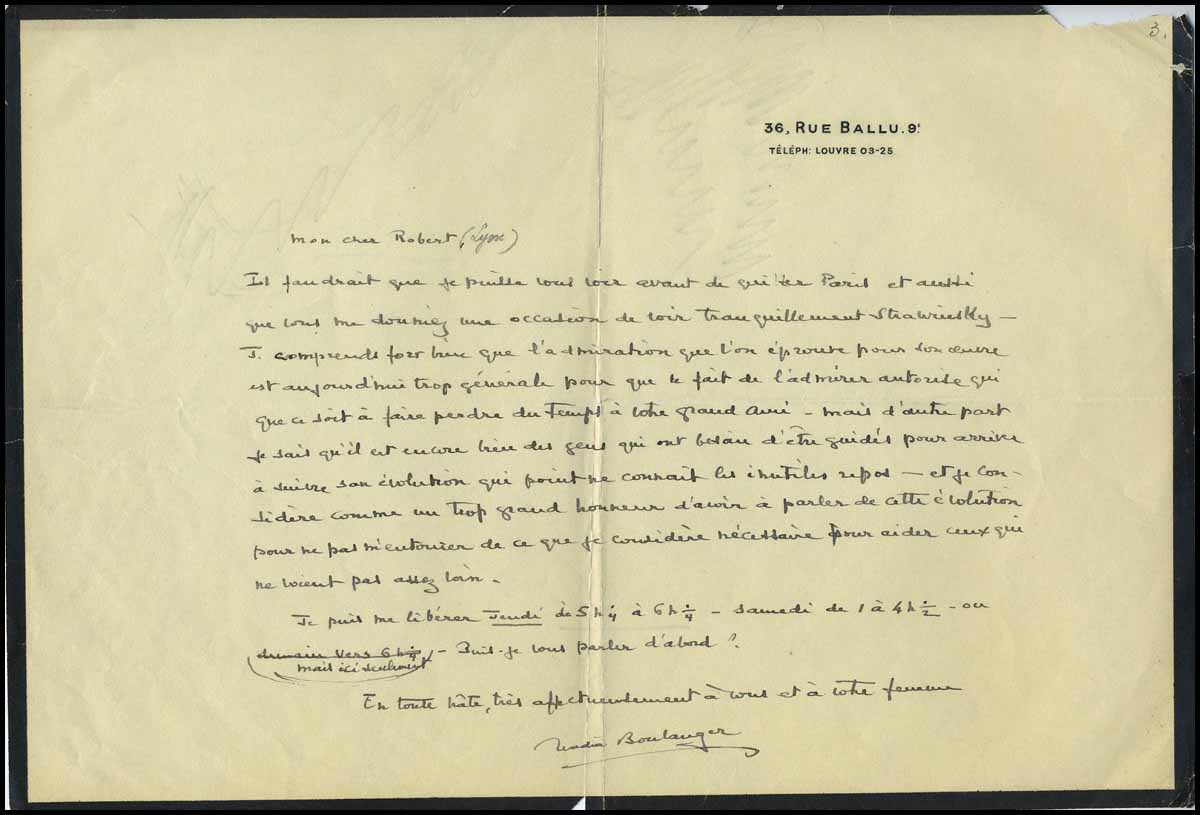 3.
36, RUE BALLU. 9e
TÉLÉPH: LOUVRE 03-25
Mon cher Robert (Lyon)
Il faudrait que je puisse vous voir avant de quitter Paris et aussi
que vous me donniez une occasion de voir tranquillement Strawinsky —
Je comprends fort bien que l'admiration que l'on éprouve pour son œuvre
est aujourd'hui trop générale pour que le fait de l'admirer autorise qui
que ce soit à faire perdre du temps à votre grand Ami — mais d'autre part
je sais qu'il est encore bien des gens qui ont besoin d'être guidés pour arriver
à suivre son évolution qui point ne connait les inutiles repos — et je con-
sidère comme un trop grand honneur d'avoir à parler de cette évolution
pour ne pas m'entourer de ce que je considère nécessaire pour aider ceux qui
ne voient pas assez loin.
Je puis me libérer Jeudi de 5h ¼ à 6h ¼ — Samedi de 1 à 4h ½ — ou
demain vers 6h ¼ — Puis-je vous parler d'abord ?
mais ici seulement
En toute hâte, très affectueusement à vous et à votre femme
Nadia Boulanger